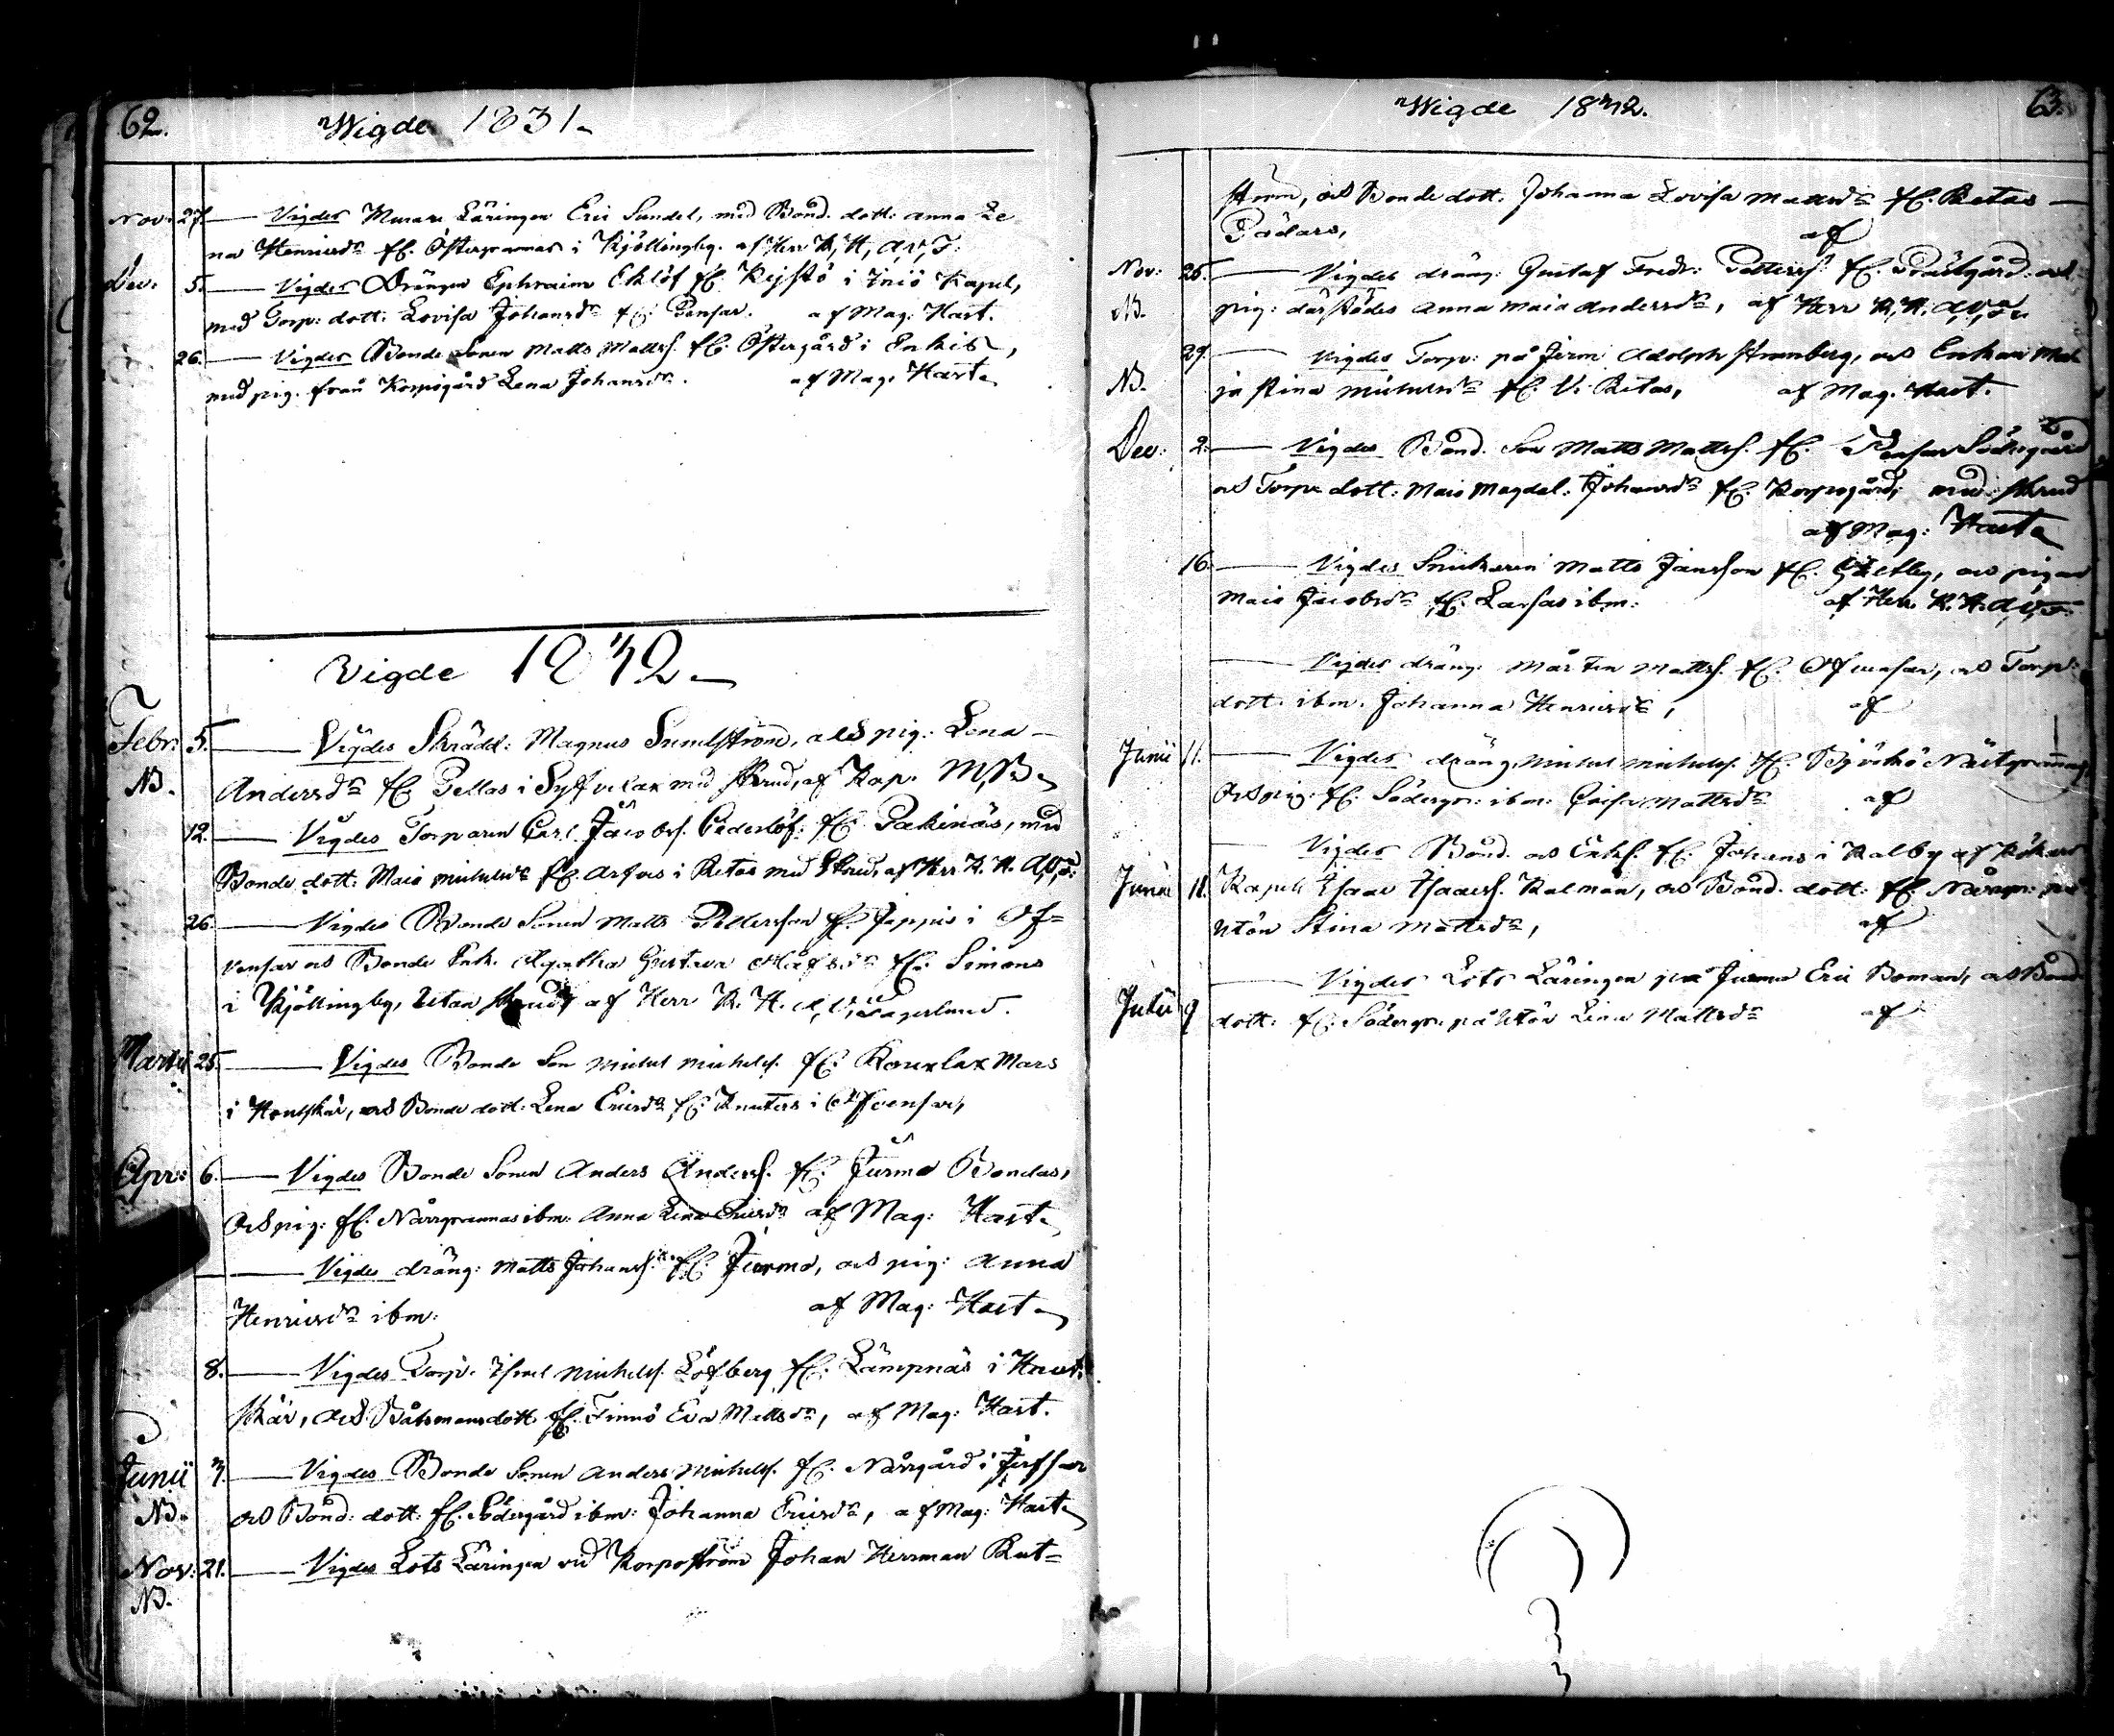 62.
Wigde 1831.
Nov: 27. Vigdes Murare Läringen Eric Sundel, med Bond. dott: Anna Le
na Henricsdr fr. Östergrannas i Kjöllingby. af Herr K, H, A, V, F.
Dec: 5. Vigdes Drängen Ephraim Eklöf fr. Kejstö i Iniö Kapel,
med Torp: dott. Lovisa Johansdr fr. Pensar. af Mag. Hart.
26. Vigdes Bonde Sonen Matts Matts. fr. Östergård i Enkis,
med pig. från Korpogård Lena Johansdr. af Mag. Hart.
Vigde 1832.
Febr: 5. Vigdes Skrädd: Magnus Sundström, och pig: Lena
NB. Andersdr fr. Pellas i Sylfvelax med skrud, af Kap. M, B.
12. Vigdes Torparen Carl Jacobs. Cederlöf fr. Pakinäs, med
Bonde dott: Maia Michelsdr fr. Arfvas i Retas med Skrud, af Herr K. H. A, V, F.
26. Vigdes Bonde Sonen Matts Pettersson fr. Jeppis i Of=
vensar och Bonde Enk. Agatha Gustava Olofsdr fr. Simons
i Kjöllingby, Utan skrud af Herr K. H. A, V, Fagerlund.
Martii 25. Vigdes Bonde Son Michel Michels. fr. Rouxlax Mars
i Houtskär, och Bonde dott: Lena Ericsdr fr. Knuters i Ofvensar,
Apr: 6. Vigdes Bonde Sonen Anders Anders. fr. Jurmo Bondas,
och pig: fr. Norrgrannas ibm: Anna Lena Ericsdr af Mag: Hart.
Vigdes dräng: Matts Johans. fr. Jurmo, och pig: Anna
Henricsdr ibm: af Mag: Hart.
8. Vigdes Torp. Israel Michels. Löfberg fr. Lämpnäs i Hout.
skär, och Båtsmansdott fr. Finnö Eva Mattsdr, af Mag: Hart.
Junii 3. Vigdes Bonde Sonen Anders Michels. fr. Norrgård i
NB. och Bond: dott: fr. Södergård ibm: Johanna Ericsdr, af Mag: Hart.
Nov: 21. Vigdes Lots Läringen vid Korpoström Johan Herrman Rut=
NB.
Wigde 1832.
63.
ström, och Bonde dott. Johanna Lovisa Mattsdr fr. Retas
Pädars, af
Nov: 25. Vigdes dräng: Gustaf Fredr: Petters. fr. Prästgård och
NB. pig: därstädes Anna Maia Andersdr, af Herr K, H. A, V, F.
29. Vigdes Torp: på Jurm Adolph Stromberg, och Enkan Ma
NB. ja Stina Michelsdr fr. V. Retas, af Mag. Hart.
Dec: 2. Vigdes Bond. Son Matts Matts. fr. Pensar Södergård
och Torpe dott: Maia Magdal: Johansdr fr. Korpogård, med skrud
af Mag: Hart.
16. Vigdes Snickaren Matts Jansson fr. Gyttby, och pigan
Maia Jacobsdr fr. Larsas ibm: af Herr K. H. A, V, F.
Vigdes dräng: Mårten Matts. fr. Ofvensar, och Torp:
dott. ibm. Johanna Henricsdr, af
Junii 11. Vigdes dräng. Michel Michels. fr. Björkö Nästgrannas,
och pig: fr. Södergr: ibm: Caisa Mattsdr af
Vigdes Bond. och Enkl. fr. Johans i Kalby af Kökars
Junii 11. Kapell Isaac Isacs. Kalman, och Bond. dott: fr. Norrgr: på
Utön Stina Mattsdr, af
Vigdes Lots Läringen på Jurmo Eric Boman, och Bond
Julii 9 dott: fr. Södergr: på Utön Lena Mattsdr af